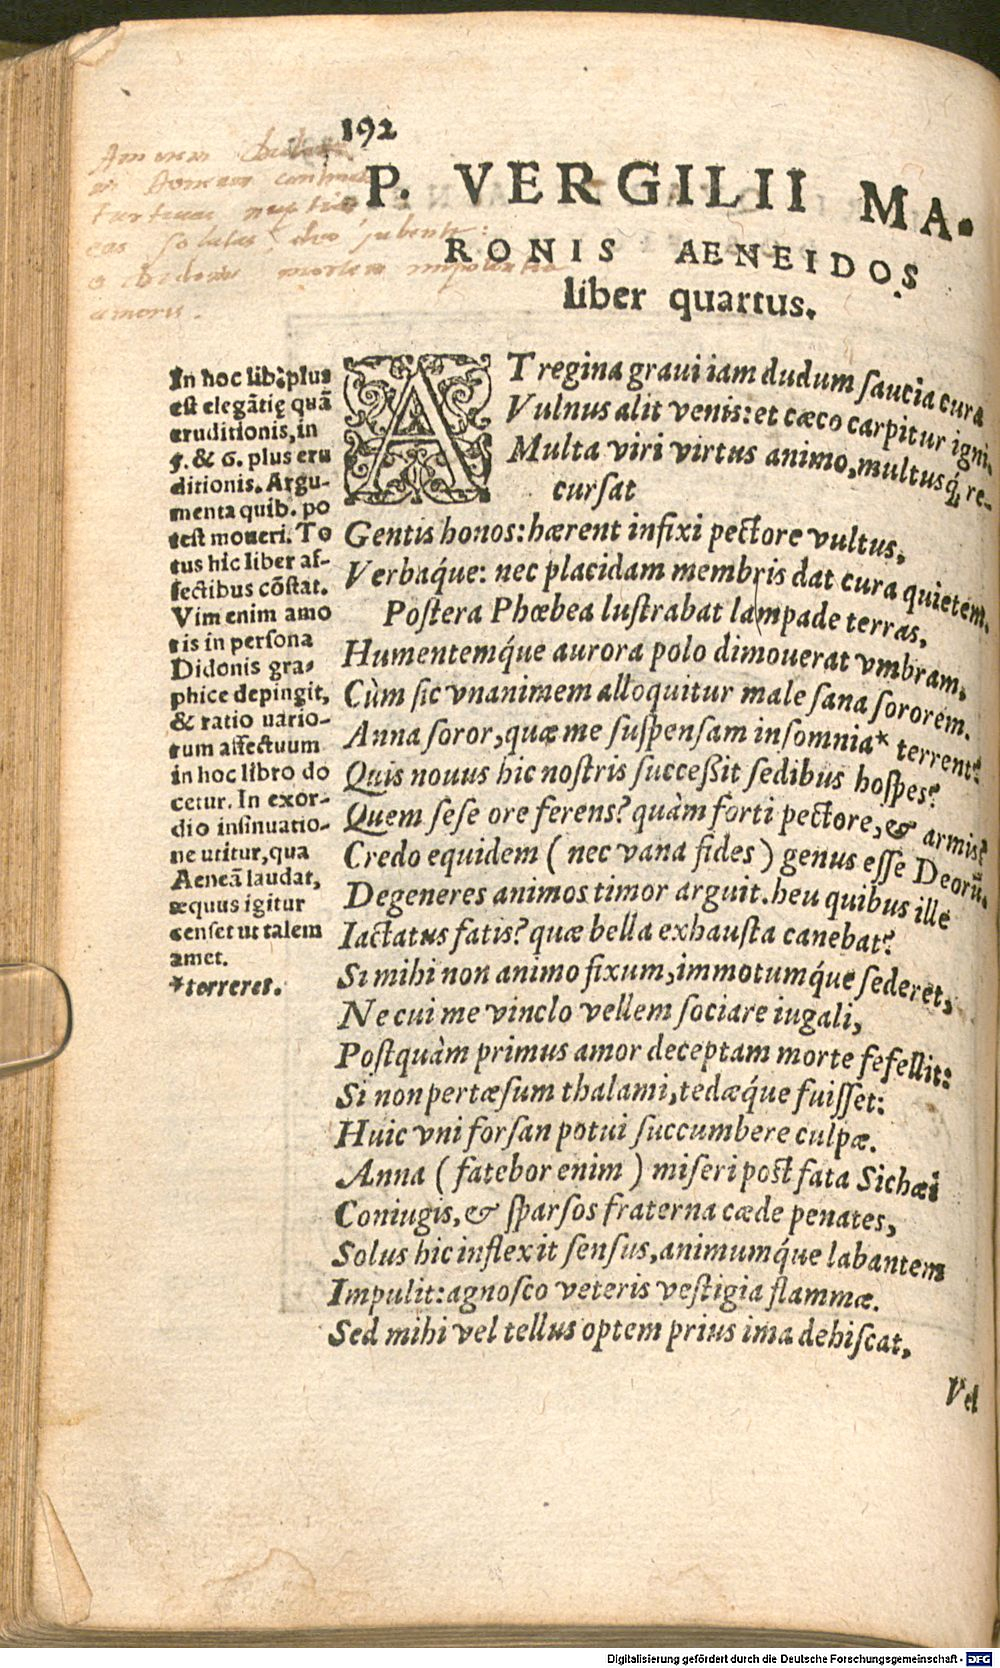 192
P. VERGILII MA-
RONIS AENEIDOS
liber quartus.
In hoc lib. plus
est elegãtię quã
eruditionis, in
5. & 6. plus eru
ditionis. Argu-
menta quib. po
test moueri. To
tus hic liber af-
fectibus cõstat.
Vim enim amo
ris in persona
Didonis gra-
phice depingit,
& ratio uario-
rum affectuum
in hoc libro do
cetur. In exor-
dio insinuatio-
ne utitur, qua
Aeneã laudat,
æquus igitur
censet ut talem
amet.
*terreret.
AT regina graui iam dudum saucia cura
Vulnus alit venis: et cæco carpitur igni.
Multa viri virtus animo, multusq́; re-
cursat
Gentis honos: hærent infixi pectore vultus,
Verbaq́ue: nec placidam membris dat cura quietem.
Postera Phœbea lustrabat lampade terras,
Humentemq́ue aurora polo dimouerat vmbram,
Cùm sic vnanimem alloquitur male sana sororem.
Anna soror, quæ me suspensam insomnia* terrent?
Quis nouus hic nostris successit sedibus hospes?
Quem sese ore ferens? quàm forti pectore, & armis?
Credo equidem ( nec vana fides ) genus esse Deorũ.
Degeneres animos timor arguit. heu quibus ille
Iactatus fatis? quæ bella exhausta canebat?
Si mihi non animo fixum, immotumq́ue sederet,
Ne cui me vinclo vellem sociare iugali,
Postquàm primus amor deceptam morte fefellit:
Si non pertæsum thalami, tedæq́ue fuisset:
Huic vni forsan potui succumbere culpæ.
Anna ( fatebor enim ) miseri post fata Sichæi
Coniugis, & sparsos fraterna cæde penates,
Solus hic inflexit sensus, animumq́ue labantem
Impulit: agnosco veteris vestigia flammæ.
Sed mihi vel tellus optem prius ima dehiscat,
Vel
Digitalisierung gefördert durch die Deutsche Forschungsgemeinschaft - DFG